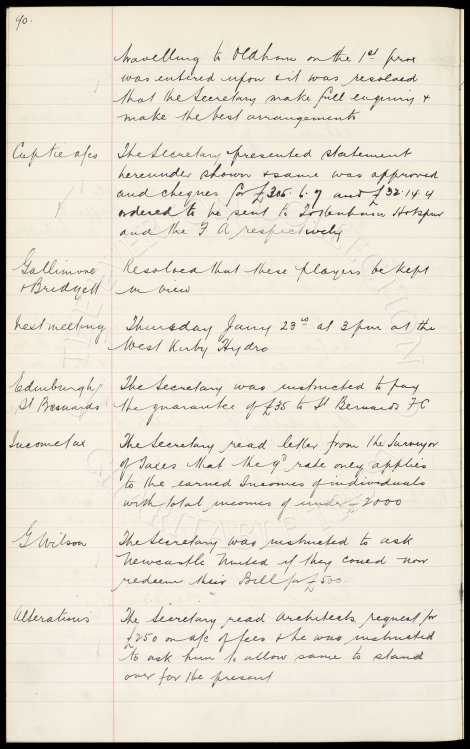 90.
travelling to Oldham on the 1st prox
was entered upon & it was resolved
that the Secretary make full enquiry &
make the best arrangements
Cup tie a/cs The Secretary presented statement
hereunder shown & same was approved
and cheques for £306.6.7 and £32.14.4
ordered to be sent to Tottenham Hotspur
and the F A respectively
Gallimore Resolved that these players be kept
& Bridgett in view
Next meeting Thursday Jany 23rd at 3pm at the
West Kirby Hydro
Edinburgh The Secretary was instructed to pay
St Bernards the guarantee of £35 to St Bernards F C
Income tax The Secretary read letter from the Surveyor
of Taxes that the 9d rate only applies
to the earned Incomes of individuals
with total incomes of under 2000
G Wilson The Secretary was instructed to ask
Newcastle United if they could now
redeem their Bill for £500.
Alterations The Secretary read Architects request for
£250 on a/c of fees & he was instructed
to ask him to allow same to stand
over for the present
THE EVERTON COLLECTION
CHARITABLE TRUST